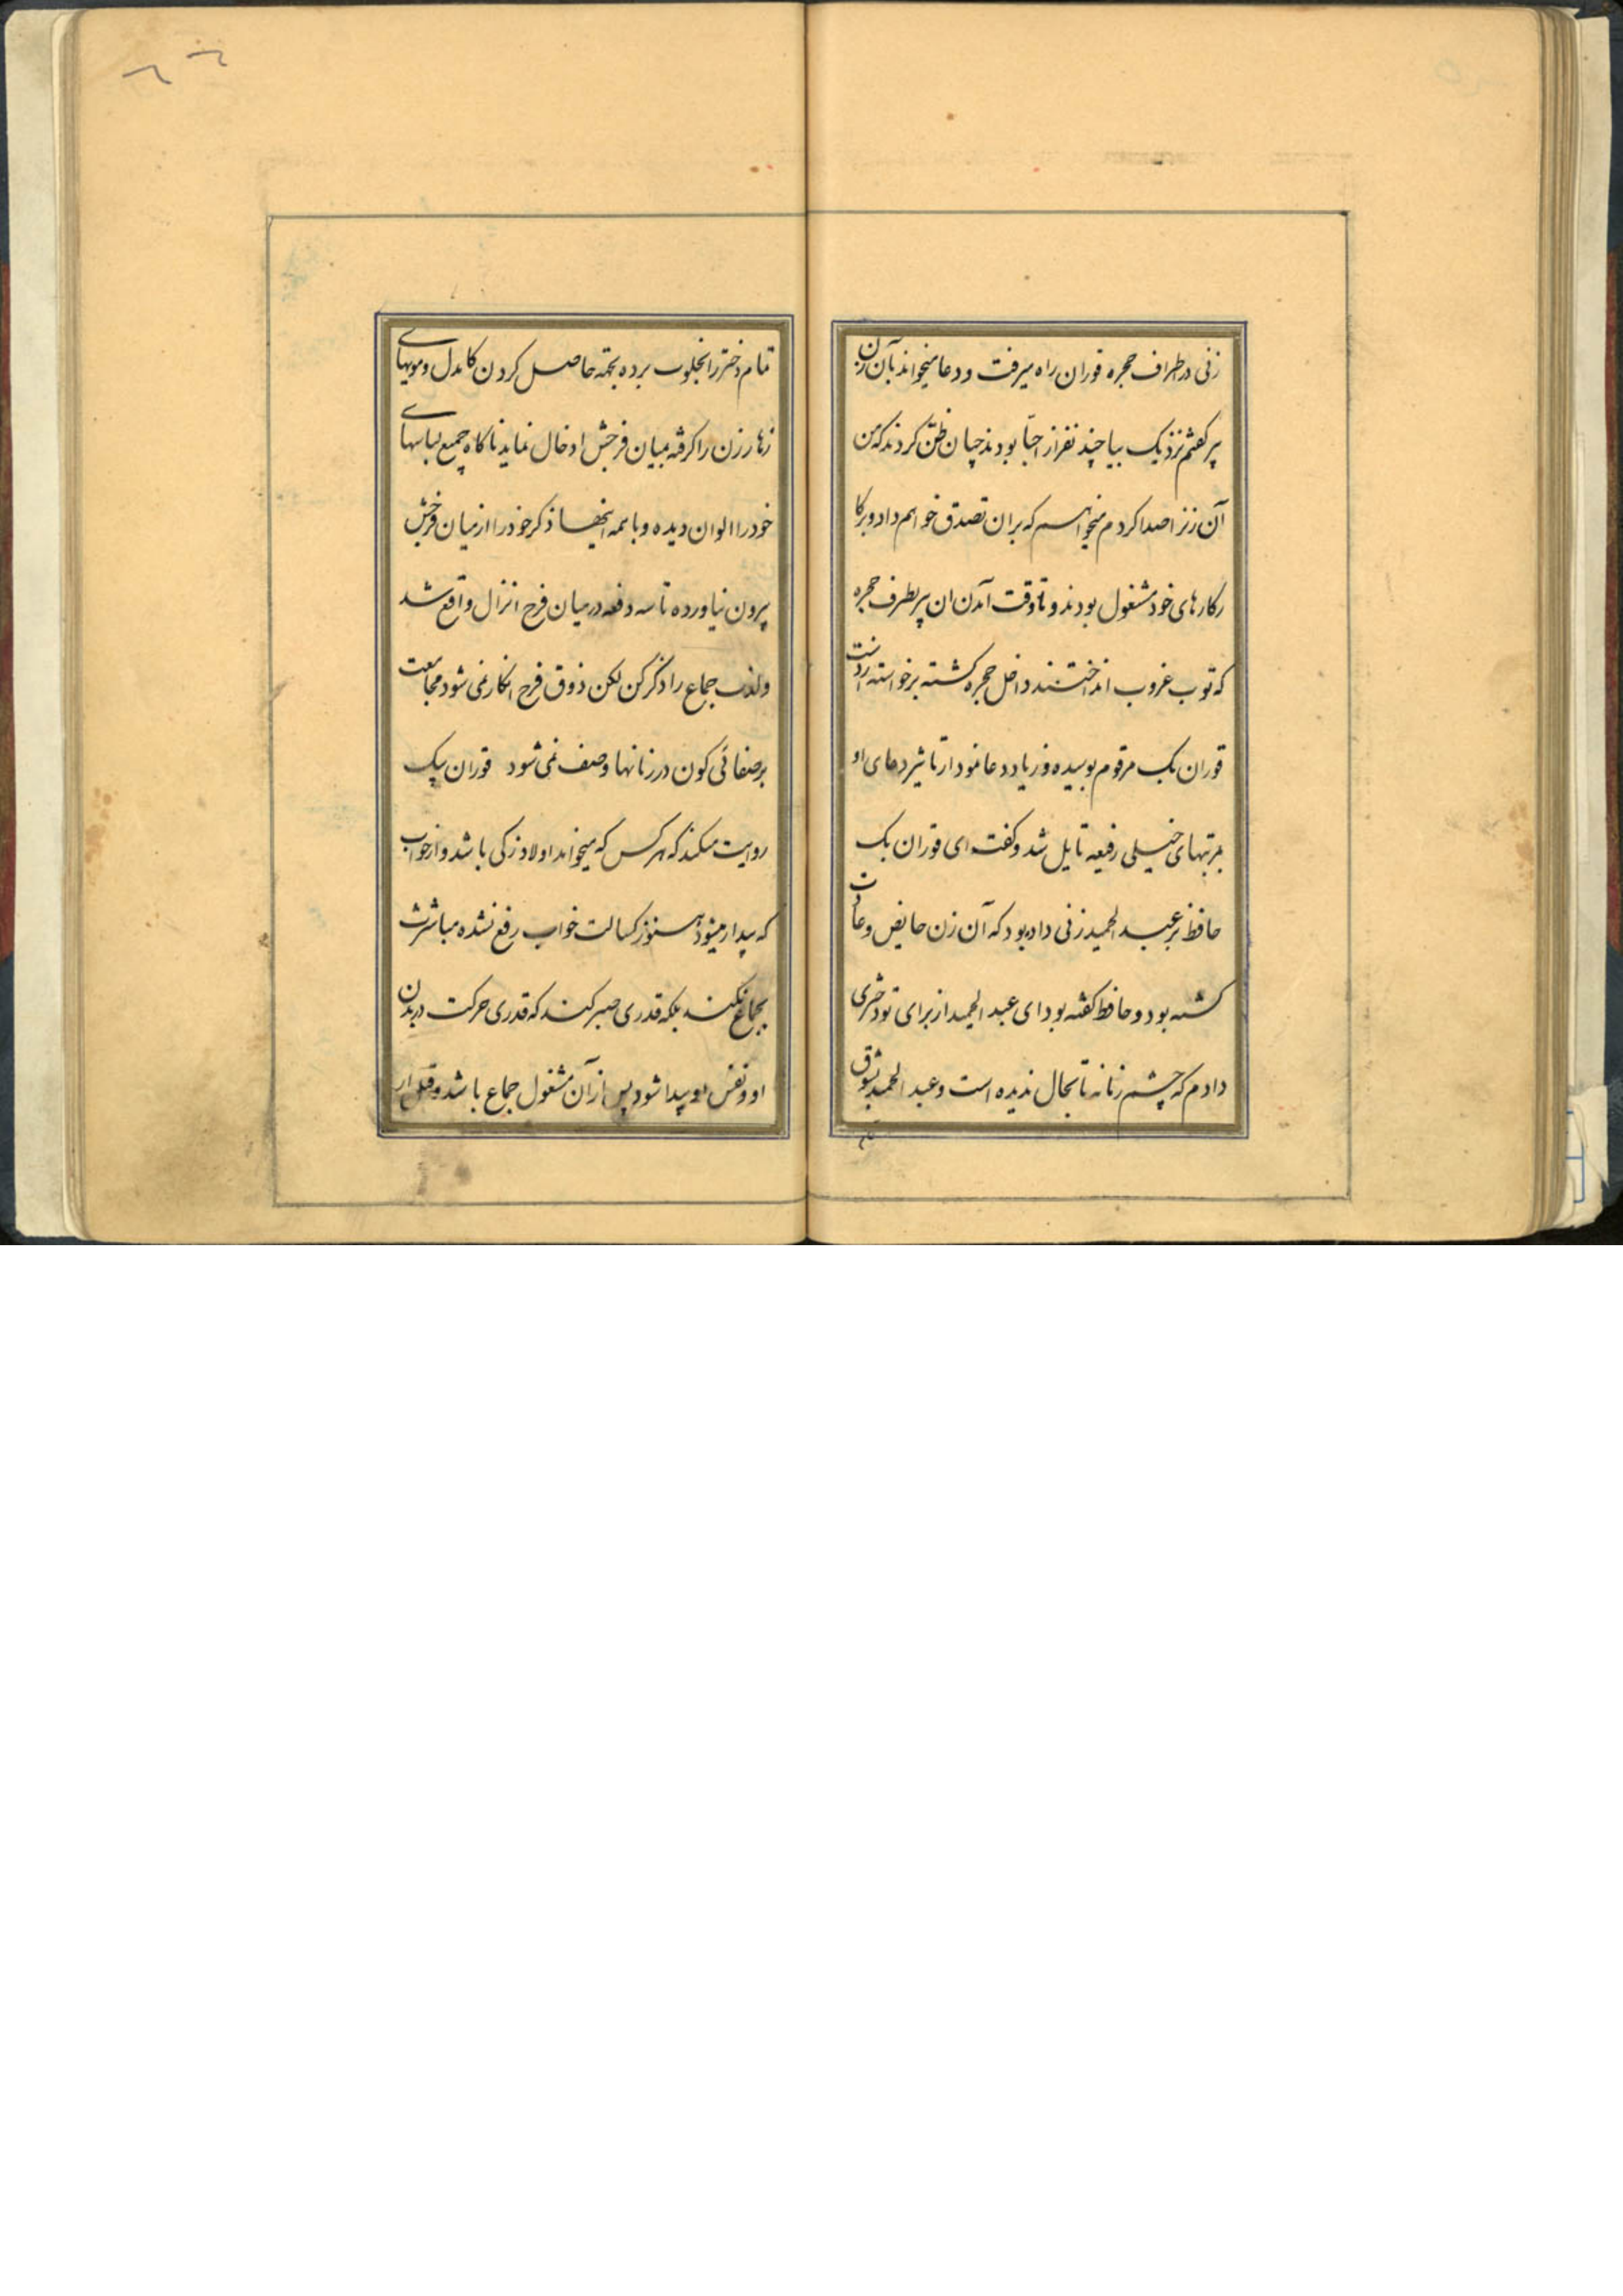 زنی در اطراف حجره قوران راه میرفت و دعا میخواند بآن زن
پر گفتم نزدیک بیا چند نفر از احبّا بودند چنان ظنّ کردند که من
آن زنرا صدا کردم میخواهم که بر آن تصدق خواهم داد و بر کا
رکارهای خود مشغول بودند و تا وقت آمدن ان پیر بطرف حجره
که توپ غروب انداختند داخل حجره گشته برخواسته از دست
قوران بک مرقوم بوسیده و زیاد دعا نمود از تاثیر دعای او
بمرتبهای خیلی رفیعه نایل شد و گفت ای قوران بک
حافظ بر عبد الحمید زنی داده بود که آن زن حایض و عادت
گشته بود و حافظ گفته بود ای عبد الحمید از برای تو دختری
دادم که چشم زنانه تا بحال ندیده است و عبد الحمید بشوق
تمام
تمام دختر را بخلوت برده بجمه حاصل کردن کامدل و مویهای
زهار زن را گرفته بمیان فرجش ادخال نماید ناگاه جمیع لباسهای
خود را الوان دیده و با همه اینها ذکر خود را از میان فرجش
بیرون نیاورده تا سه دفعه در میان فرج انزال واقع شد
ولذت جماع را ذکر کن لکن ذوق فرج انکار نمی شود مجامعت
بر صفائی کون در زنانها وصف نمی شود قوران بیک
روایت میکند که هر کس که میخواهد اولاد زکی باشد و از خواب
که بیدار میشود هنوز کسالت خواب رفع نشده مباشرت
بجماع نکند بلکه قدری صبر کند که قدری حرکت در بدن
او و نفس او پیدا شود پس از آن مشغول جماع باشد و قبل از